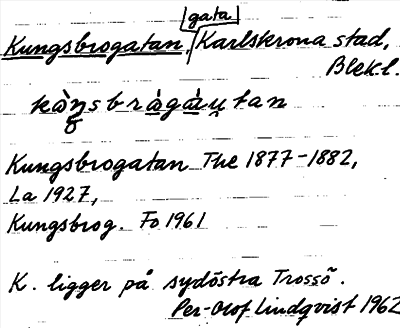 gata
Kungsbrogatan, Karlskrona stad,
Blekl.
Kungsbrogatan The 1877-1882,
La 1927,
Kungsbrog. Fo 1961
K. ligger på sydöstra Trossö.
Per-Olof Lindqvist 1962